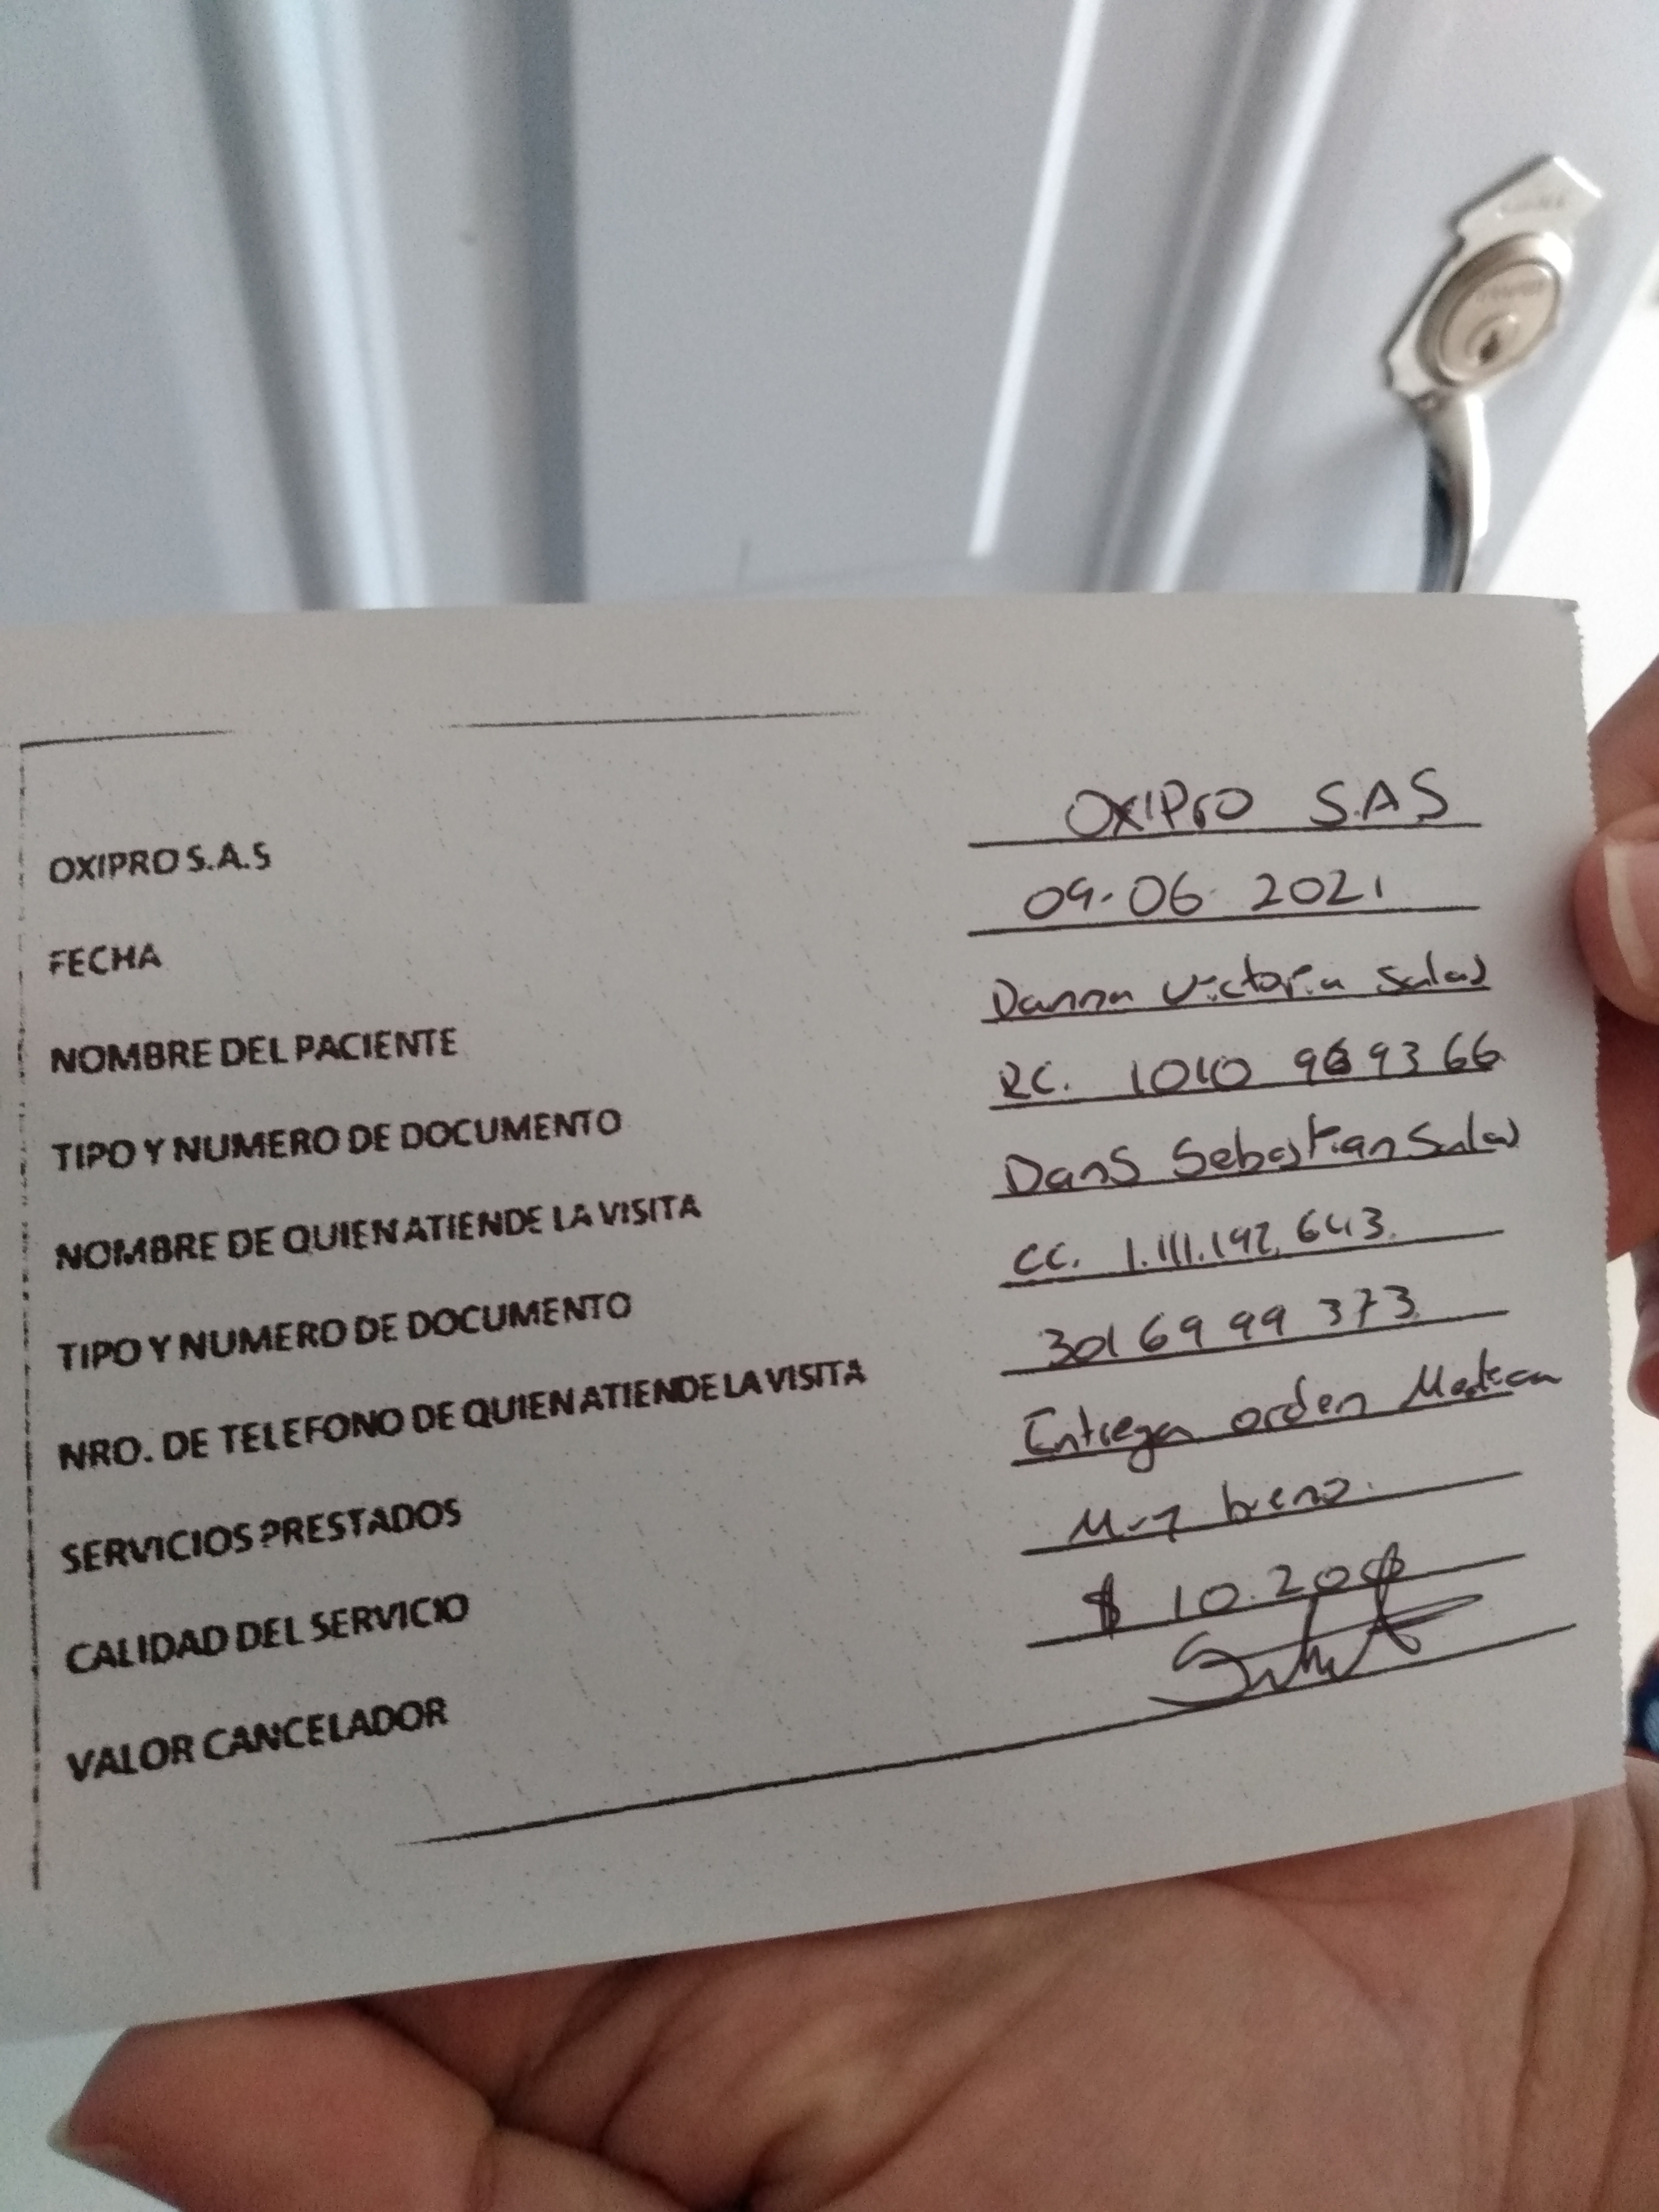 OXIPRO S.A.S OXIPro S.A.S
FECHA 09-06 2021
NOMBRE DEL PACIENTE Danna Victoria Salas
TIPO Y NUMERO DE DOCUMENTO RC. 1010 969366
NOMBRE DE QUIEN ATIENDE LA VISITA Dans Sebastian Salas
TIPO Y NUMERO DE DOCUMENTO CC. 1.111.192.643.
NRO. DE TELEFONO DE QUIEN ATIENDE LA VISITA 301 69 99 373
SERVICIOS PRESTADOS Entrega orden Medica
CALIDAD DEL SERVICIO Muy bueno.
VALOR CANCELADOR $ 10.200